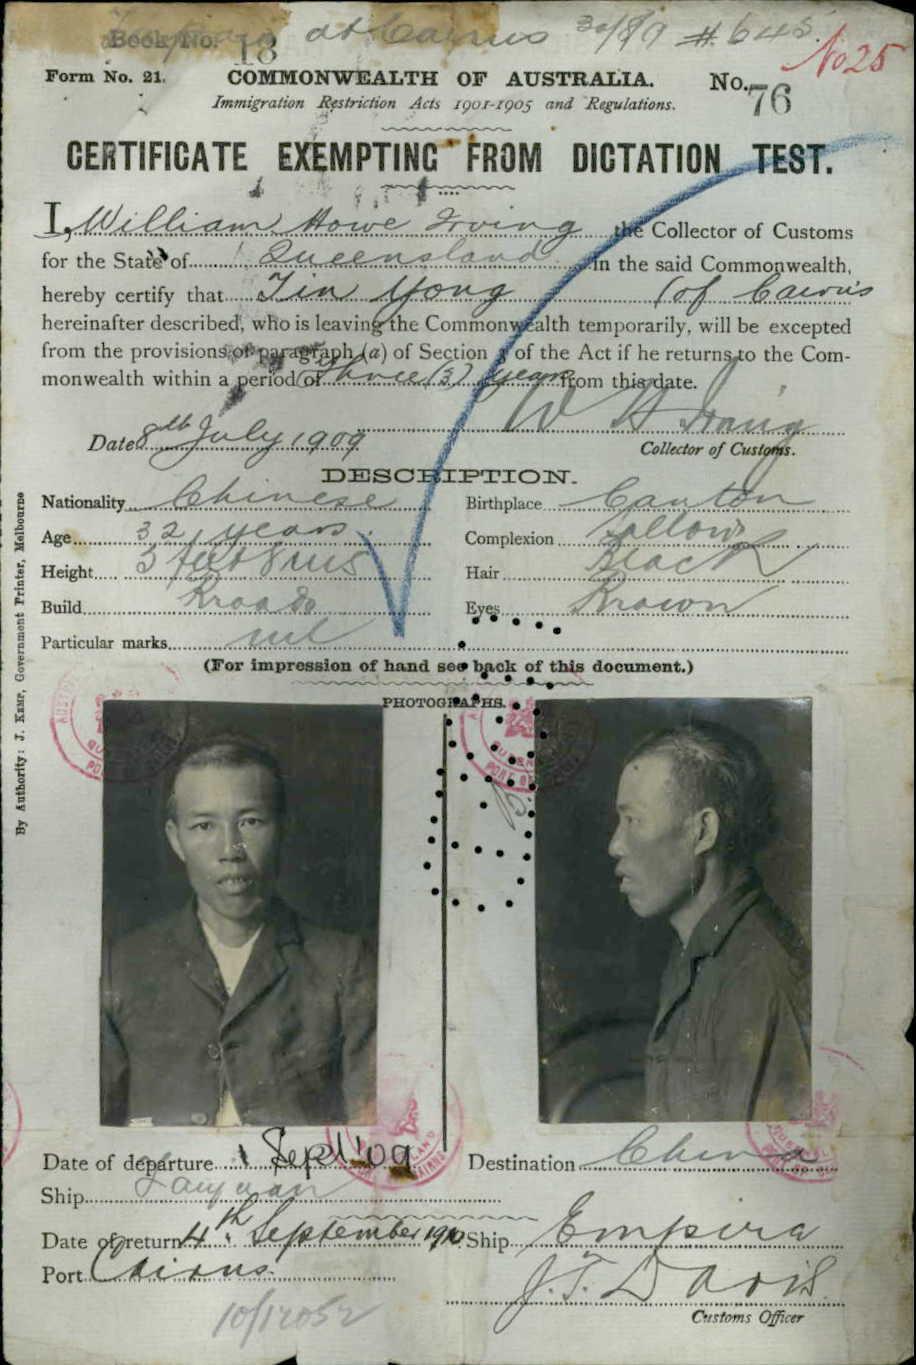 Book No. 13 at Cairns 30/8/9 # 645.
No 25
Form No. 21. COMMONWEALTH OF AUSTRALIA. No. 76
Immigration Restriction Acts 1901-1905 and Regulations.
CERTIFICATE EXEMPTING FROM DICTATION TEST.
I, William Howe Irving the Collector of Customs
for the State of Queensland in the said Commonwealth,
hereby certify that Tin Yong (of Cairns
hereinafter described, who is leaving the Commonwealth temporarily, will be excepted
from the provisions of paragraph (a) of Section 3 of the Act if he returns to the Com-
monwealth within a period of Three (3) years from this date.
W H Irving
Date 8th July 1909 Collector of Customs.
DESCRIPTION.
Nationality Chinese Birthplace Canton
Age 32 years Complexion Sallow
Height 5 feet 8 ins Hair Black
Build Broad Eyes Brown
Particular marks nil
(For impression of hand see back of this document.)
PHOTOGRAPHS.
By Authority: J. KEMP, Government Printer, Melbourne
Date of departure 1 Sept '09 Destination China
Ship Taiyuan
Date of return 4th September 1910 Ship Empire
Port Cairns J. T. Davis
Customs Officer
10/12052